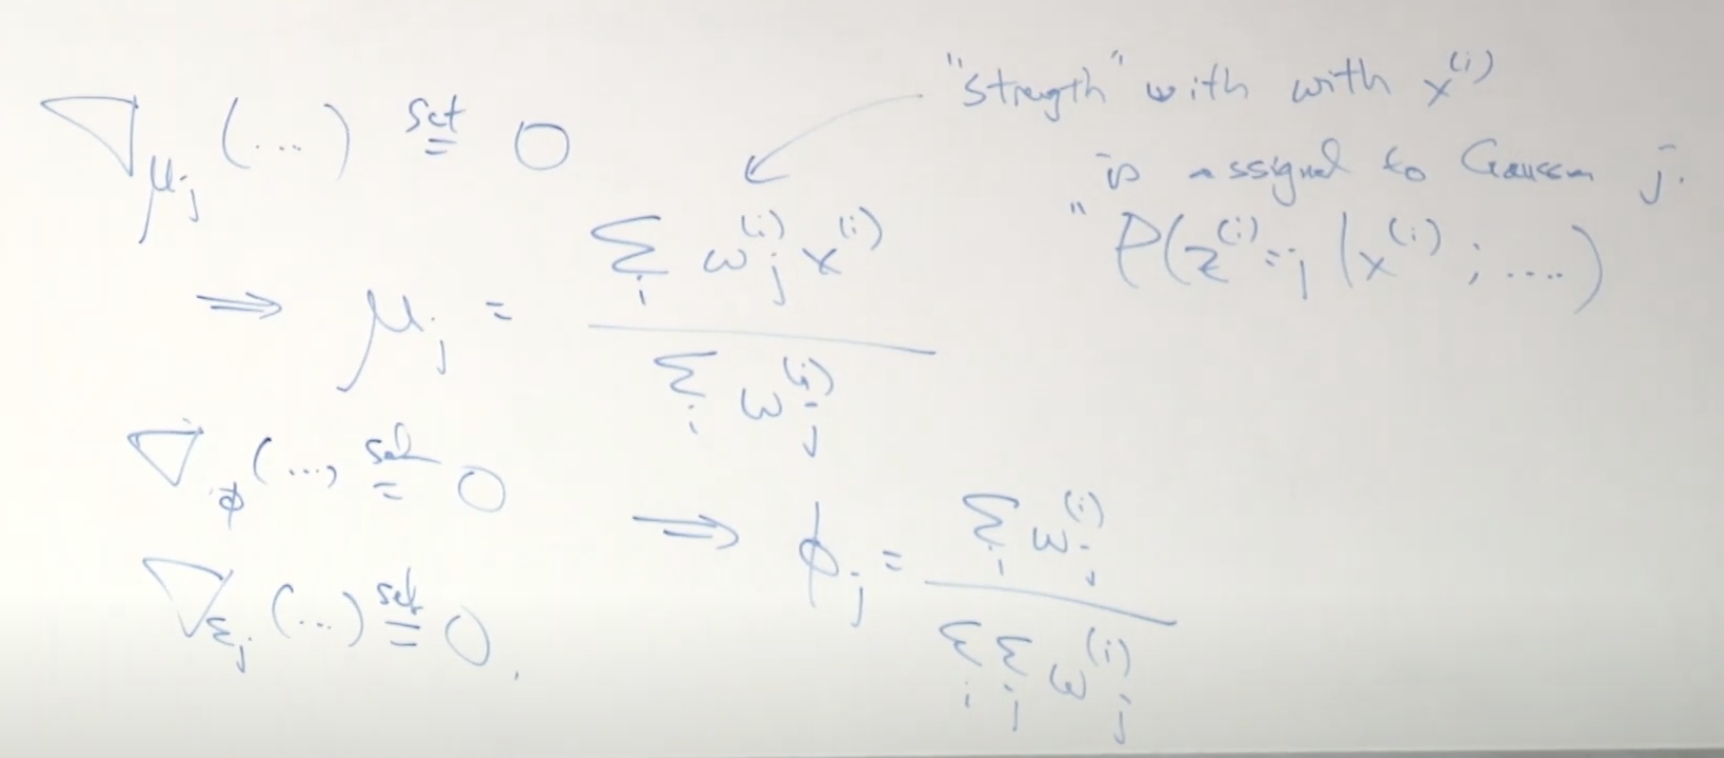 ∇_{μ_j} (...) set= 0
"strength" with with x^{(i)}
is assigned to Gaussian j.
" P(z^{(i)}=j | x^{(i)}; ....)
⇒ μ_j = Σ_i ω_j^{(i)} x^{(i)} / Σ_i ω_j^{(i)}
∇_ϕ (..., set= 0
⇒ ϕ_j = Σ_i ω_j^{(i)} / Σ_i Σ_j ω_j^{(i)}
∇_{Σ_j} (...) set= 0.